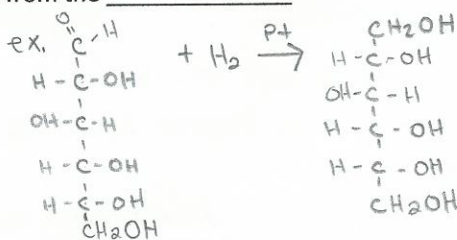 from the ____________________
ex. O
C - H
H - C - OH
OH - C - H
H - C - OH
H - C - OH
CH2OH
+ H2
Pt
CH2OH
H - C - OH
OH - C - H
H - C - OH
H - C - OH
CH2OH